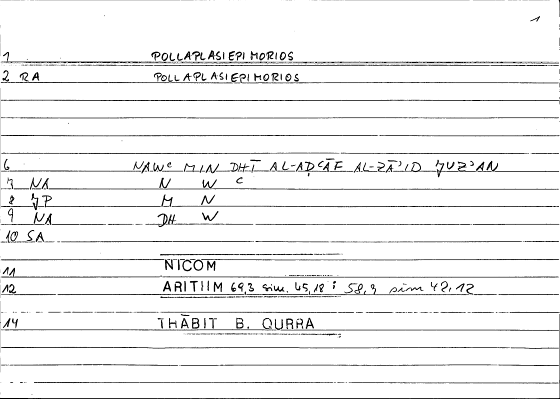 1
1 POLLAPLASIEPIMORIOS
2 RA POLLAPLASIEPIMORIOS
6 NAWᶜ MIN DHĪ AL-AḌᶜĀF AL-ZĀʾID ǦUZʾAN
7 NA N W ᶜ
8 ǦP M N
9 NA DH W
10 SA
11 NICOM
12 ARITIIM 69,3 sim. 45,18 : 58,9 sim 42,12
14 THĀBIT B. QURRA